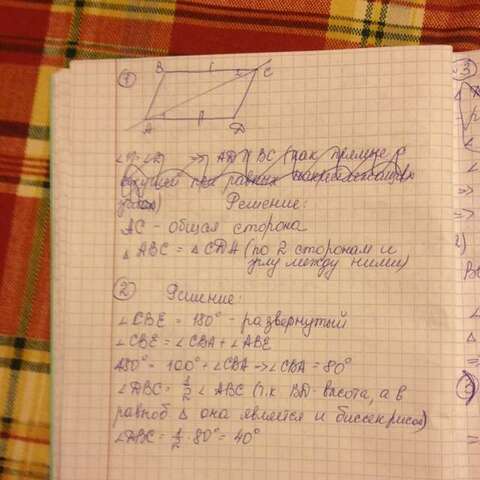 1
B C
A D
∠1=∠2 => AD∥BC (как прямые с
секущей при равных накрестлежащих
углах)
Решение:
AC - общая сторона
△ABC = △CDA (по 2 сторонам и
углу между ними)
2 Решение:
∠CBE = 180° - развернутый
∠CBE = ∠CBA + ∠ABE
180° = 100° + ∠CBA => ∠CBA = 80°
∠DBC = 1/2 ∠ABC (т.к BD- высота, а в
равноб △ она является и биссектрисой)
∠DBC = 1/2 · 80° = 40°